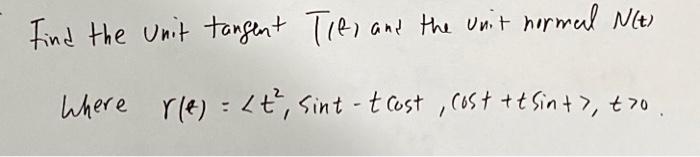 Find the unit tangent T(t) and the unit normal N(t)
Where r(t) = <t², sint - t cost, cost + t sint>, t>0.